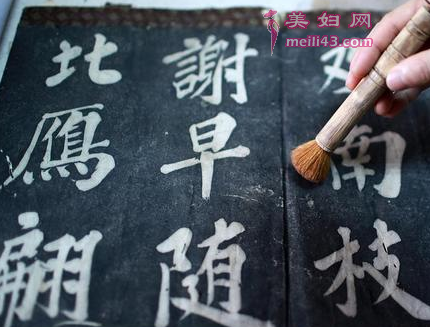 美妇网
meili43.com
南枝
謝早随
北鴈翩